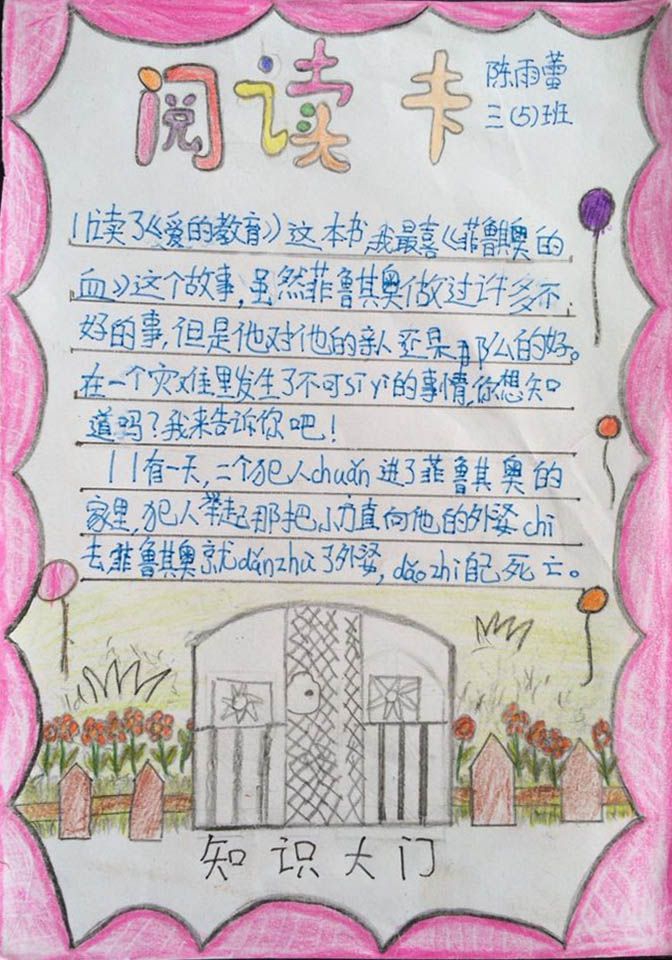 阅读卡
陈雨蕾
三(5)班
读了《爱的教育》这本书,我最喜《菲鲁其奥的
血》这个故事,虽然菲鲁其奥做过许多不
好的事,但是他对他的亲人还是那么的好。
在一个灾难里发生了不可sī yì的事情,你想知
道吗?我来告诉你吧!
有一天,二个犯人chuǎn进了菲鲁其奥的
家里,犯人举起那把小刀直向他的外婆chì
去,菲鲁其奥就dǎnzhù了外婆,dǎozhì自己死亡。
知识大门